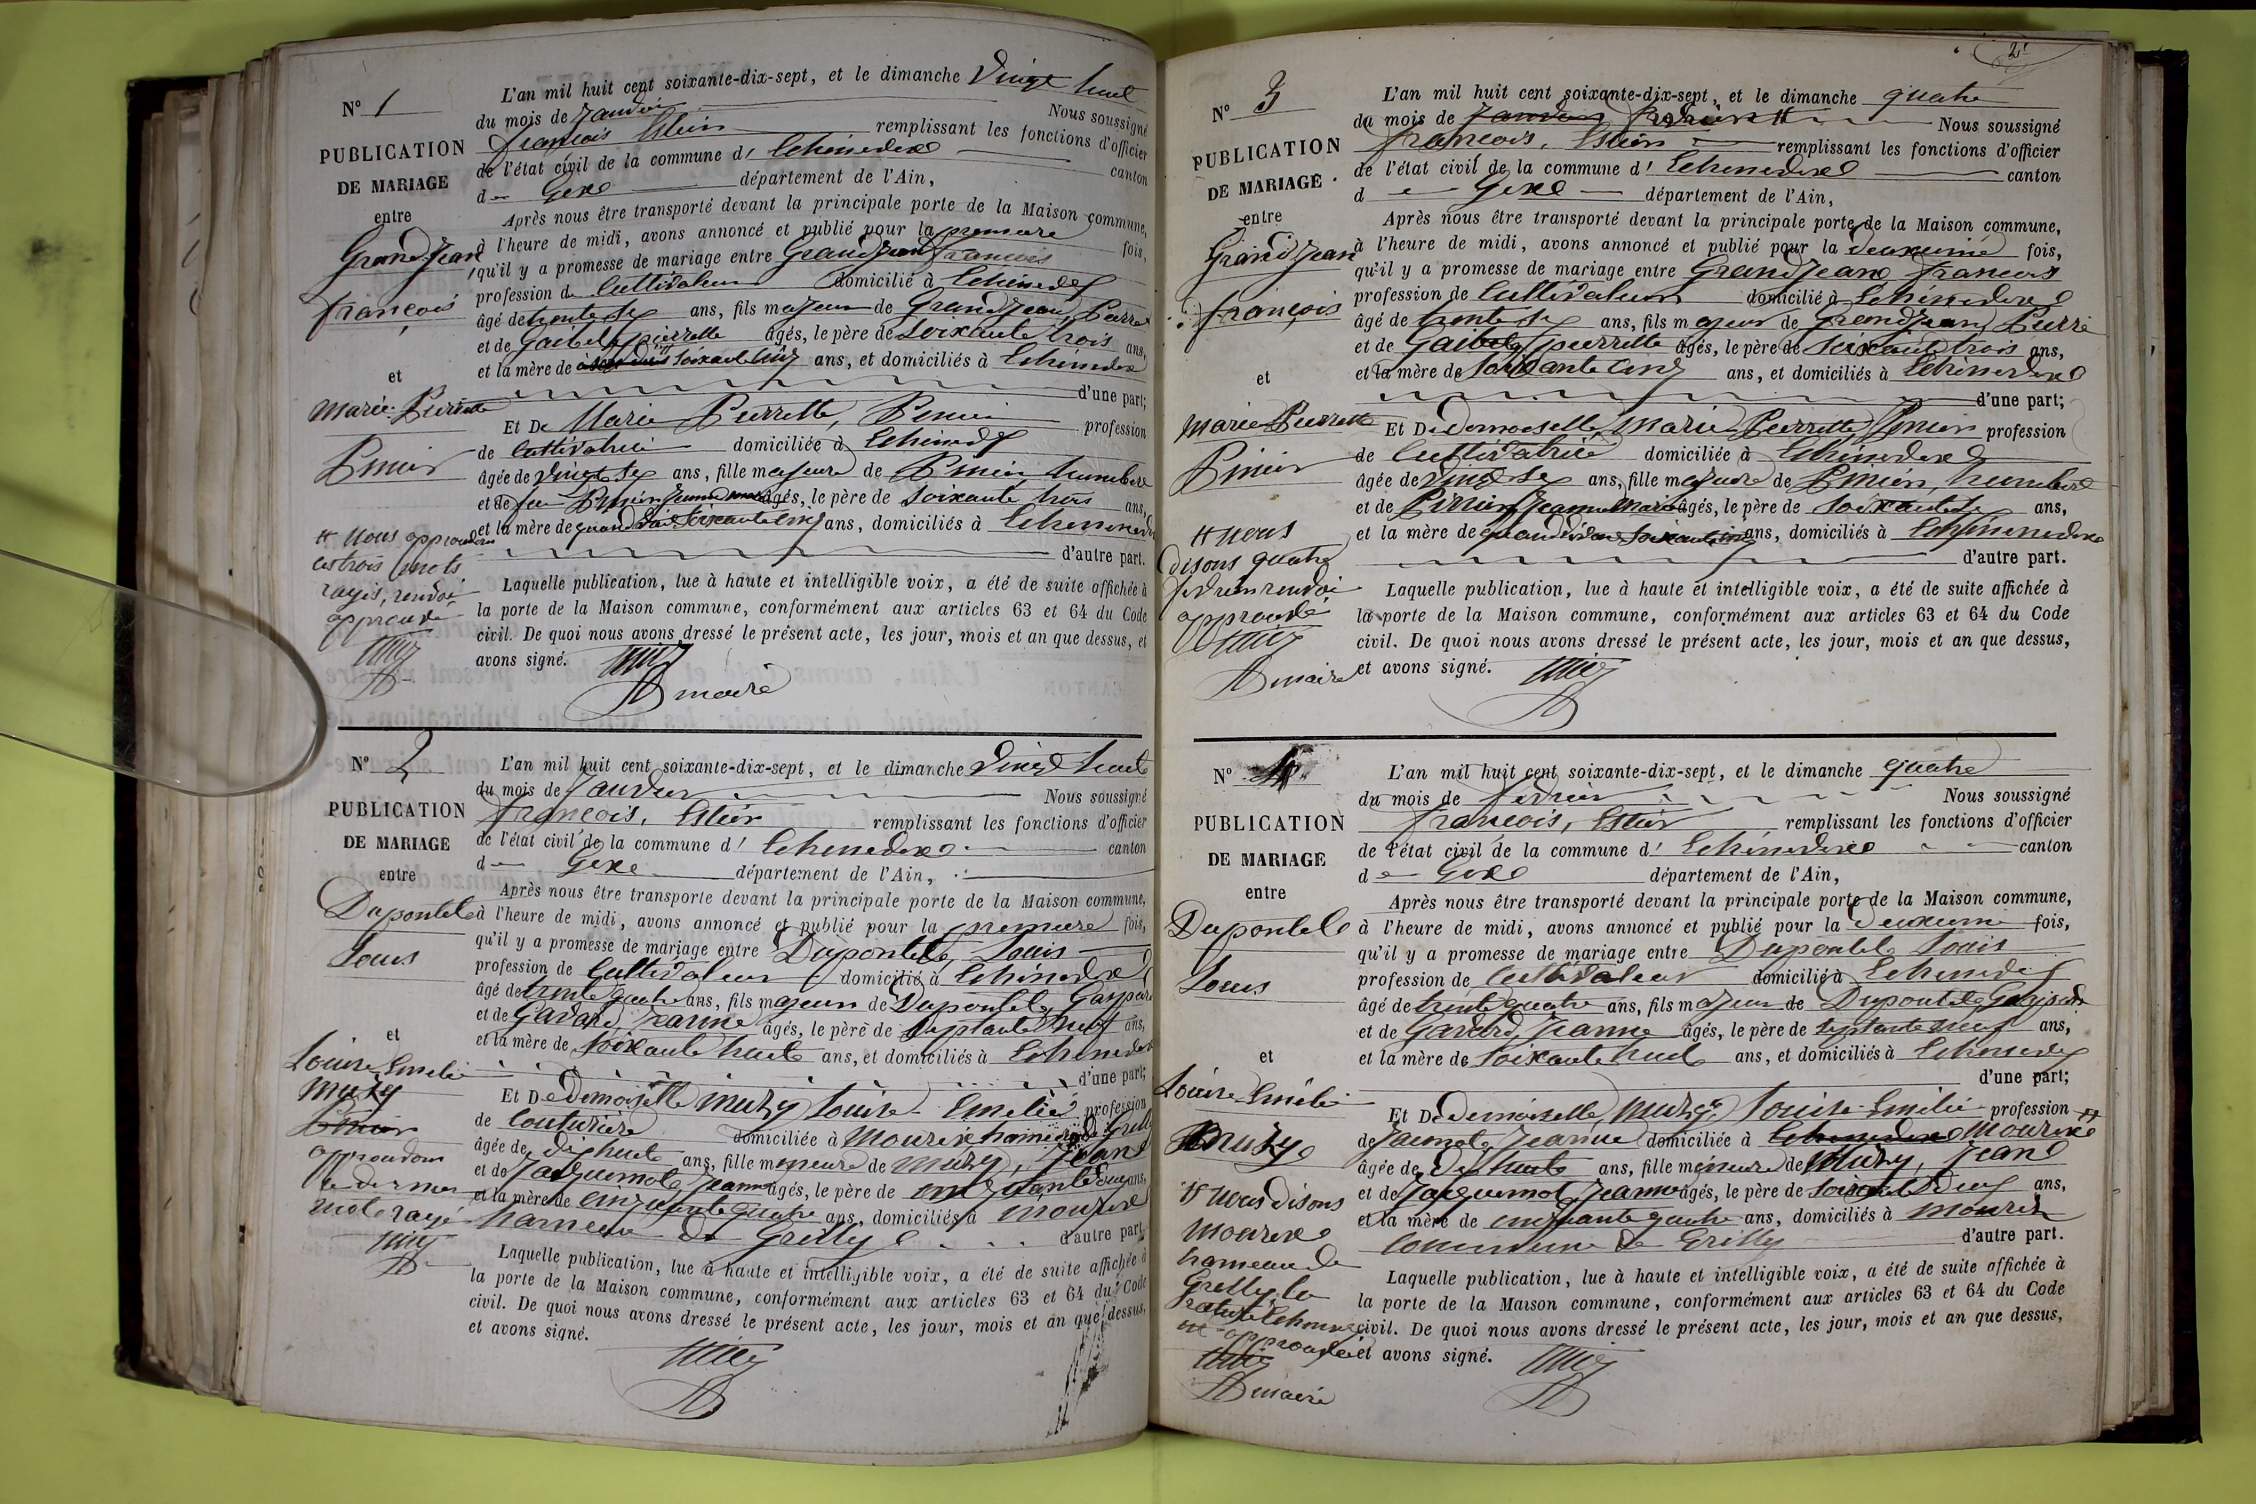 N° 1
PUBLICATION
DE MARIAGE
entre
Grandjean
françois
et
Marie Pierrette
# Nous approuvons
ces trois mots
rayés, renvoi
approuvé
L'an mil huit cent soixante-dix-sept, et le dimanche Vingt huit
du mois de Janvier Nous soussigné
françois remplissant les fonctions d'officier
de l'état civil de la commune d' Echenevex canton
de Gex département de l'Ain,
Après nous être transporté devant la principale porte de la Maison commune,
à l'heure de midi, avons annoncé et publié pour la premiere fois,
qu'il y a promesse de mariage entre Grandjean francois
profession de Cultivateur domicilié à Echenevex
âgé de trente six ans, fils majeur de Grandjean, Pierre
et de pierrette âgés, le père de Soixante trois ans,
et la mère de soixante cinq ans, et domiciliés à Echenevex
d'une part;
Et De Marie Pierrette, profession
de Cultivatrice domiciliée à Echenevex
âgée de vingt six ans, fille majeure de humbert
et de feu jeanne marie âgés, le père de Soixante trois ans,
et la mère de quand vivait Soixante cinq ans, domiciliés à Echenevex
d'autre part.
Laquelle publication, lue à haute et intelligible voix, a été de suite affichée à
la porte de la Maison commune, conformément aux articles 63 et 64 du Code
civil. De quoi nous avons dressé le présent acte, les jour, mois et an que dessus, et
avons signé.
maire
N° 2
PUBLICATION
DE MARIAGE
entre
Dupontele
Louis
et
Louise Emélie
Muzy
approuvons
le dernier
mot rayé
L'an mil huit cent soixante-dix-sept, et le dimanche Vingt huit
du mois de Janvier Nous soussigné
françois, remplissant les fonctions d'officier
de l'état civil de la commune d' Echenevex canton
de Gex département de l'Ain,
Après nous être transporté devant la principale porte de la Maison commune,
à l'heure de midi, avons annoncé et publié pour la premiere fois,
qu'il y a promesse de mariage entre Dupontele, Louis
profession de Cultivateur domicilié à Echenevex
âgé de trente quatre ans, fils majeur de Dupontele, Gaspard
et de Gavard, Jeanne âgés, le père de Septante neuf ans,
et la mère de Soixante huit ans, et domiciliés à Echenevex
d'une part;
Et De Demoiselle Muzy Louise Emelie profession
de Couturière domiciliée à Mourex hameau de Grilly
âgée de dix huit ans, fille mineure de Muzy, Jean
et de Jacquemot Jeanne âgés, le père de ans,
et la mère de cinquante quatre ans, domiciliés à Mourex
hameau de Grilly d'autre part.
Laquelle publication, lue à haute et intelligible voix, a été de suite affichée à
la porte de la Maison commune, conformément aux articles 63 et 64 du Code
civil. De quoi nous avons dressé le présent acte, les jour, mois et an que dessus,
et avons signé.
2
N° 3
PUBLICATION
DE MARIAGE
entre
Grandjean
françois
et
Marie Pierrette
# nous
disons quatre
fevrier renvoi
approuvé
maire
L'an mil huit cent soixante-dix-sept, et le dimanche quatre
du mois de Janvier fevrier # Nous soussigné
françois, remplissant les fonctions d'officier
de l'état civil de la commune d' Echenevex canton
de Gex département de l'Ain,
Après nous être transporté devant la principale porte de la Maison commune,
à l'heure de midi, avons annoncé et publié pour la deuxieme fois,
qu'il y a promesse de mariage entre Grandjean francois
profession de Cultivateur domicilié à Echenevex
âgé de trente six ans, fils majeur de Grandjean, Pierre
et de pierrette âgés, le père de soixante trois ans,
et la mère de soixante cinq ans, et domiciliés à Echenevex
d'une part;
Et De demoiselle Marie Pierrette profession
de Cultivatrice domiciliée à Echenevex
âgée de vingt six ans, fille majeure de humbert
et de Jeanne Marie âgés, le père de ans,
et la mère de quand vivait soixante cinq ans, domiciliés à Echenevex
d'autre part.
Laquelle publication, lue à haute et intelligible voix, a été de suite affichée à
la porte de la Maison commune, conformément aux articles 63 et 64 du Code
civil. De quoi nous avons dressé le présent acte, les jour, mois et an que dessus,
et avons signé.
N° 4
PUBLICATION
DE MARIAGE
entre
Dupontele
Louis
et
Louise Emélie
Muzy
# nous disons
Mourex
hameau de
Grilly
approuvé
maire
L'an mil huit cent soixante-dix-sept, et le dimanche quatre
du mois de fevrier Nous soussigné
francois, remplissant les fonctions d'officier
de l'état civil de la commune d' Echenevex canton
de Gex département de l'Ain,
Après nous être transporté devant la principale porte de la Maison commune,
à l'heure de midi, avons annoncé et publié pour la deuxieme fois,
qu'il y a promesse de mariage entre Dupontele Louis
profession de Cultivateur domicilié à Echenevex
âgé de trente quatre ans, fils majeur de Dupontele, Gaspard
et de Gavard, Jeanne âgés, le père de septante neuf ans,
et la mère de soixante huit ans, et domiciliés à Echenevex
d'une part;
Et De demoiselle, Muzy Louise Emelie profession
de Jeanne domiciliée à Echenevex Mourex #
âgée de dix huit ans, fille mineure de Muzy, Jean
et de Jacquemot Jeanne âgés, le père de ans,
et la mère de cinquante quatre ans, domiciliés à Mourex
commune de Grilly d'autre part.
Laquelle publication, lue à haute et intelligible voix, a été de suite affichée à
la porte de la Maison commune, conformément aux articles 63 et 64 du Code
civil. De quoi nous avons dressé le présent acte, les jour, mois et an que dessus,
et avons signé.